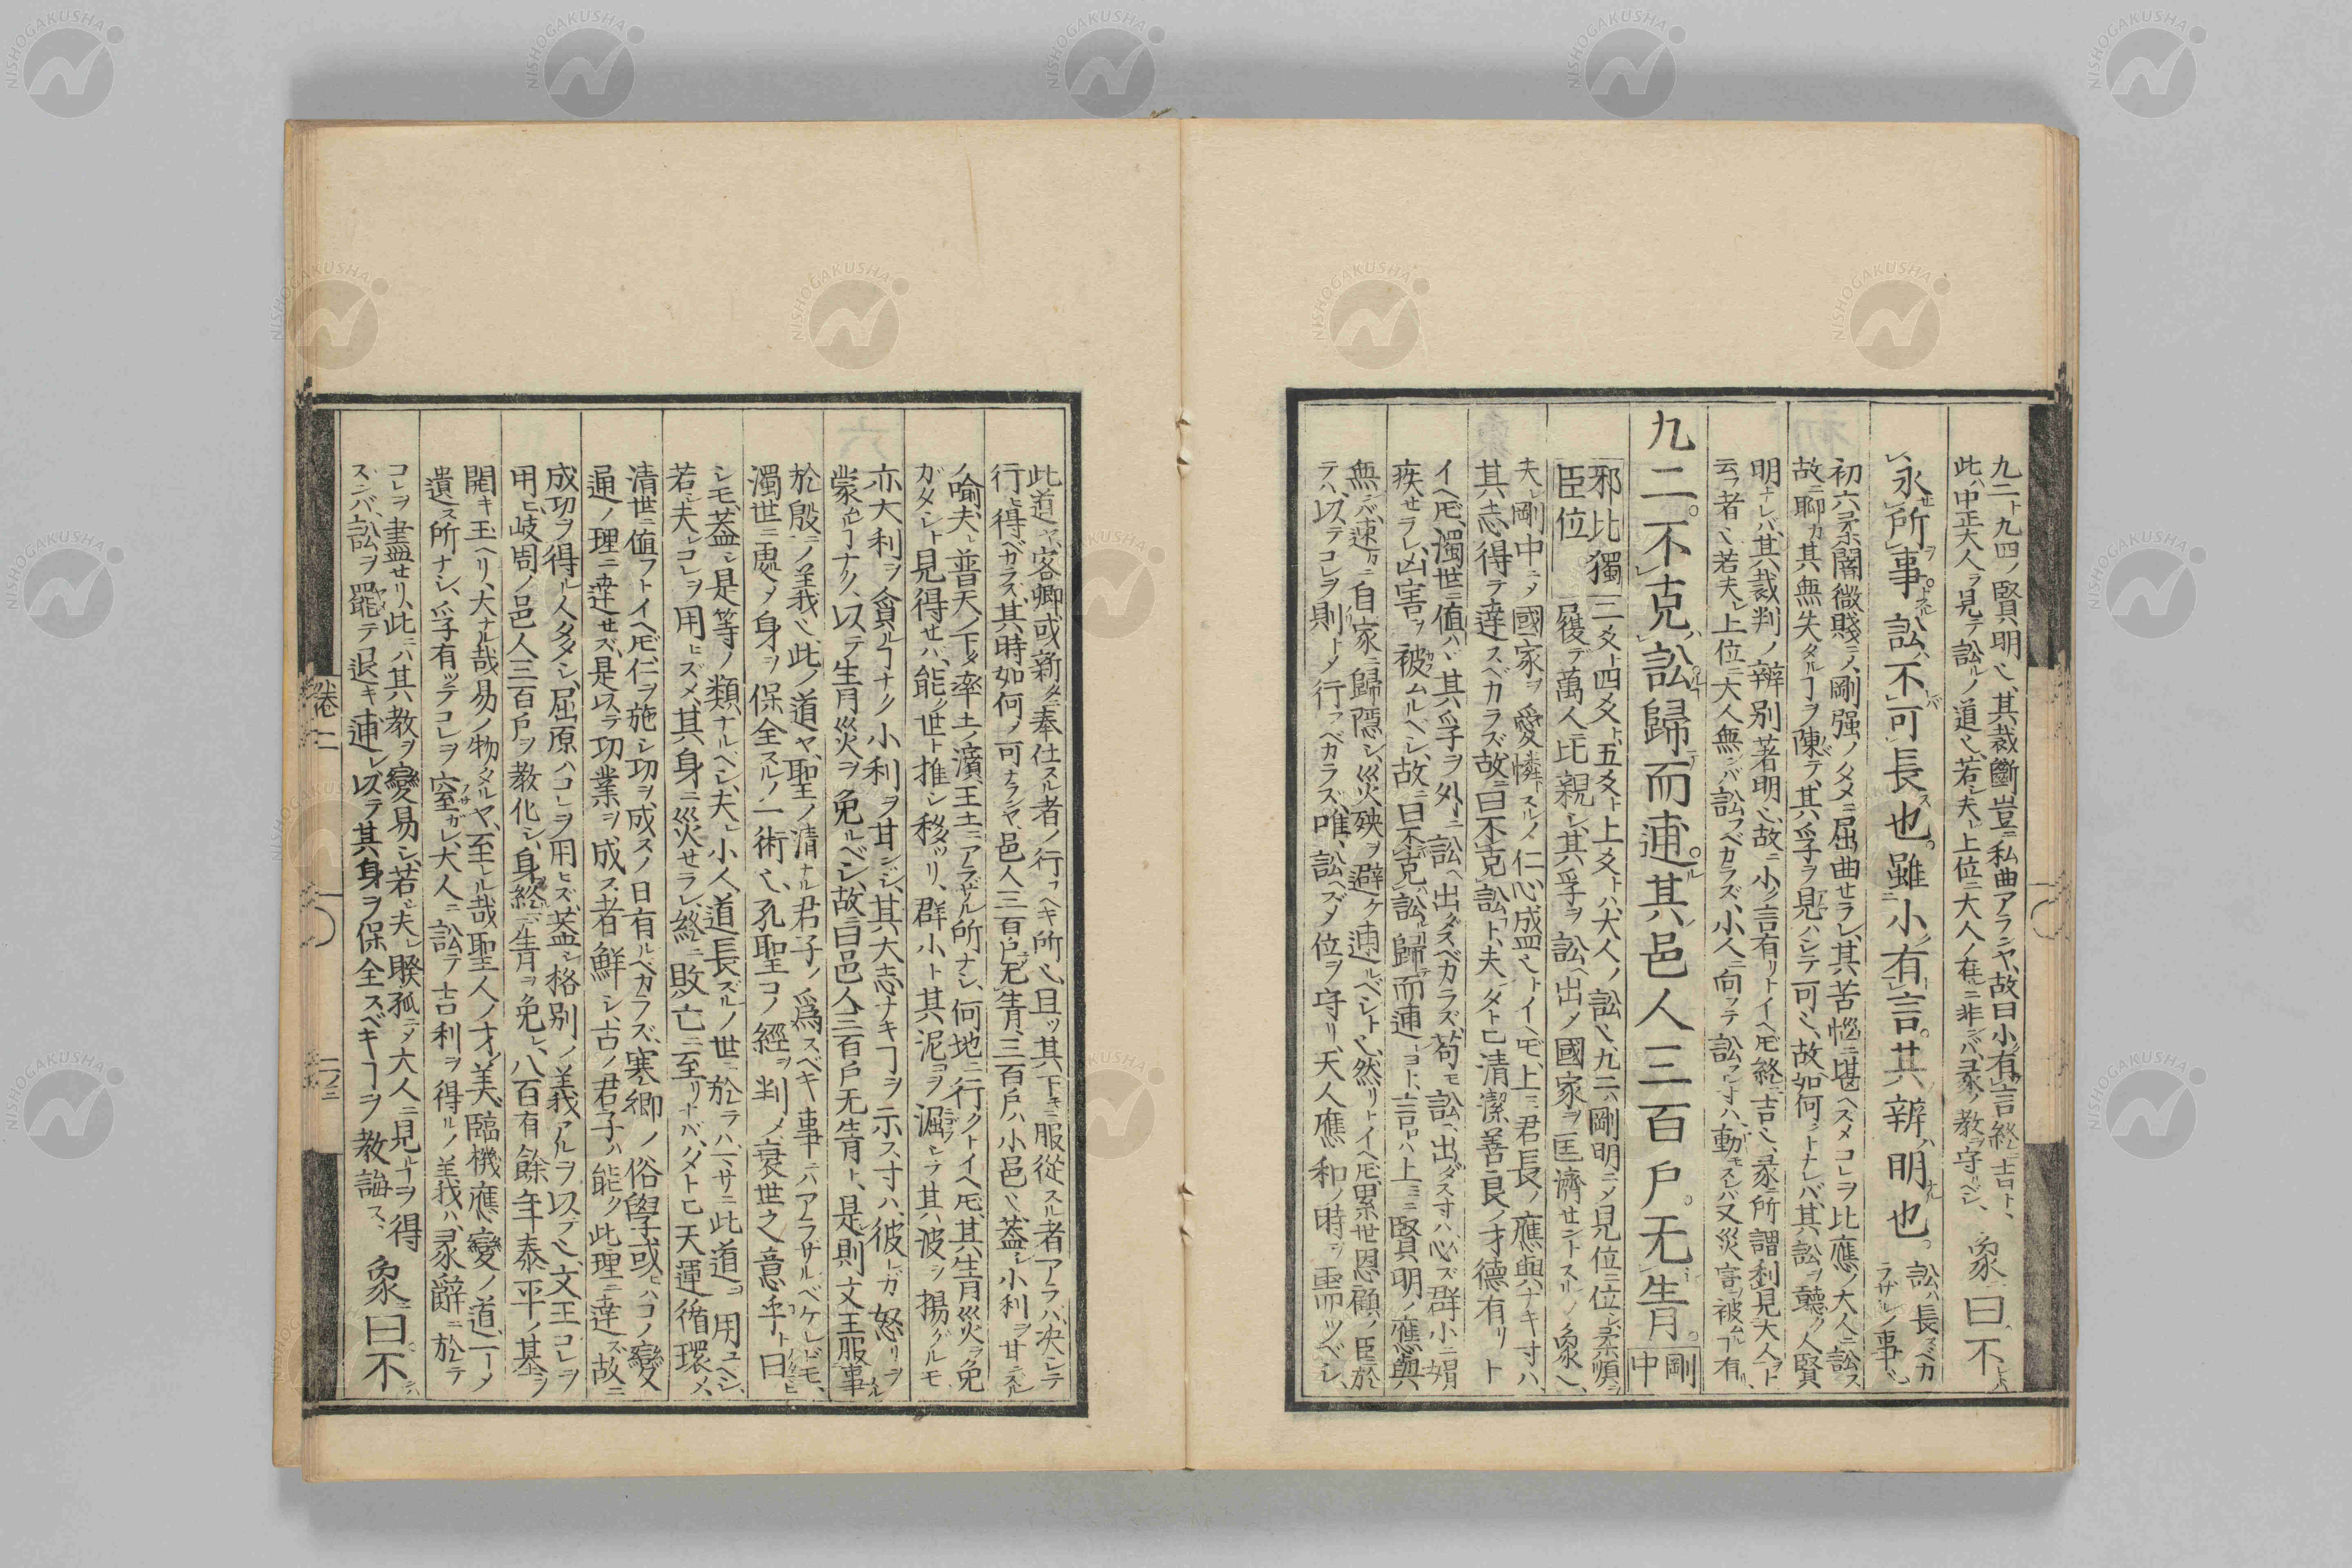 九二ト九四ノ賢明也、其裁斷豈ニ私曲アランヤ、故曰小有言終吉ト、
此ハ中正大人ヲ見テ訟ルノ道也、若シ夫レ上位ニ大人ノ在ニ非ンバ、彖ノ教ヲ守ルベシ、 象ニ曰、不
永所事。訟不可長也。雖小有言。其辨明也。
訟ハ長ズベカ
ラザルノ事也
初六柔闇微賤ニメ、剛强ノタメニ屈曲セラレ、其苦惱ニ堪ヘズメコレヲ比應ノ大人ニ訟ス
故ニ聊カ其無失タルヿヲ陳ジテ、其孚ヲ見ハシテ可也、故如何ントナレバ、其訟ヲ聽ク人賢
明ナレバ、其裁判ノ辨別著明也、故ニ小ク言有リトイヘ𪜈終ニ吉也、彖ニ所謂利見大人ヲト
云フ者也、若夫レ上位ニ大人無ンバ訟フベカラズ、小人ニ向ッテ訟フ寸ハ、動モスレバ又災害ヲ被ムルヿ有リ、
九二。不克訟。歸而逋。其邑人三百戶。无眚。
剛
中
邪比獨
臣位
三爻ト四爻ト五爻ト上爻トハ、大人ノ訟也、九二ハ剛明ニメ見位ニ位シ、柔順ヲ
履デ萬人ニ比親シ、其孚ヲ訟ヘ出ノ國家ヲ匡濟セントスルノ象也、
夫レ剛中ニメ國家ヲ愛憐スルノ仁心盛也トイヘ𪜈、上ニ君長ノ應與ナキ寸ハ、
其志得テ達スベカラズ、故ニ曰不克訟ト、夫タトヒ清潔善良ノ才德有リト
イヘ𪜈、濁世ニ値ハバ、其孚ヲ外ニ訟ヘ出ダスベカラズ、苟モ訟ヘ出ダス寸ハ、必ズ群小ニ媢
疾セラレ、凶害ヲ被ムルベシ、故ニ曰不克訟歸而逋ヨト、言ハ上ミニ賢明ノ應與
無ンバ、速カニ自家ニ歸隱シ、災殃ヲ避ケ逋ルベシト也、然リトイヘ𪜈累世恩顧ノ臣ニ於
テハ、以テコレヲ則トメ行フベカラズ、唯訟ヘズメ位ヲ守リ、天人應和ノ時ヲ需ッベシ、
此道ヤ、客卿或ハ新タニ奉仕スル者ノ行フヘキ所也、且ッ其下モニ服從スル者アラバ、決シテ
行ヒ得ベカラズ、其時如何ノ可ナランヤ、邑人三百戶无眚、三百戶ハ小邑也、蓋シ小利ヲ甘ンズル
ノ喩、夫レ普天ノ下タ、率土ノ濱、王土ニアラザル所ナシ、何地ニ行クトイヘ𪜈、其眚災ヲ免
ガタシト見得セバ、能ク世ト推シ移ッリ、群小ト其泥ヲ淈シテ其波ヲ揚グルモ
亦大利ヲ貪ルヿナク小利ヲ甘ンジ、其大志ナキヿヲ示ス寸ハ、彼レガ怒リヲ
蒙ムルヿナク、以テ生眚災ヲ免ルベシ、故ニ曰邑人三百戶无眚ト、是則文王服事
於殷ニノ義也、此ノ道ヤ、聖ノ清ナル君子ノ爲スベキ事ニハアラザルベケレドモ、
濁世ニ處メ身ヲ保全スルノ一術也、孔聖コノ經ヲ判メ、衰世之意乎ト曰
シモ、蓋シ是等ノ類ナルヘシ、夫レ小人道長ズルノ世ニ於ラハ、マサニ此道ヲ用ユベシ、
若シ夫レコレヲ用ヒズメ、其身ニ災セラレ、終ニ敗亡ニ至リナバ、タトヒ天運循環メ、
清世ニ値フトイヘ𪜈、仁ヲ施シ功ヲ成スノ日有ルベカラズ、寒鄉ノ俗學、或ヒハコノ變
通ノ理ニ達セズ、是以テ功業ヲ成ス者鮮シ、古ノ君子ハ能ク此理ニ達ズ、故ニ
成功ヲ得ル人多シ、屈原ハコレヲ用ヒズ、蓋シ格別ノ義アルヲ以テ也、文王コレヲ
用ヒ、岐周ノ邑人三百戶ヲ教化シ、身終ニ眚ヲ免レ、八百有餘年泰平ノ基ヲ
開キ玉ヘリ、大ナル哉易ノ物タルヤ、至レル哉聖人ノ才ノ美、臨機應變ノ道、一ーメ
遺ス所ナシ、孚有ッテコレヲ窒ガレ、大人ニ訟テ吉利ヲ得ルノ義ハ、彖辭ニ於テ
コレヲ盡セリ、此ニハ其教ヲ變易シ、若シ夫レ睽孤ニメ大人ニ見ルヿヲ得
ズンバ、訟ヲ罷テ退キ逋レ、以テ其身ヲ保全スベキヿヲ教誨ス、 象ニ曰。不
卷二